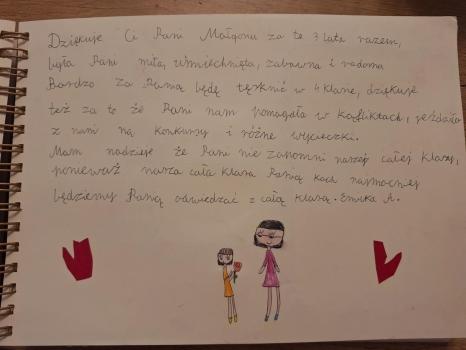 Dziękuje Ci Pani Małgoniu za te 3 lata razem,
była Pani miła, uśmiechnięta, zabawna i radosna
Bardzo za Panią będę tęsknić w 4 klasie, dziękuje
też za to że Pani nam pomagała w konfliktach, jeździła
z nami na konkursy i różne wycieczki.
Mam nadzieje że Pani nie zapomni naszej całej klasy,
ponieważ nasza cała klasa Panią koch najmocniej
będziemy Panią odwiedzać z całą klasą. Emilka A.